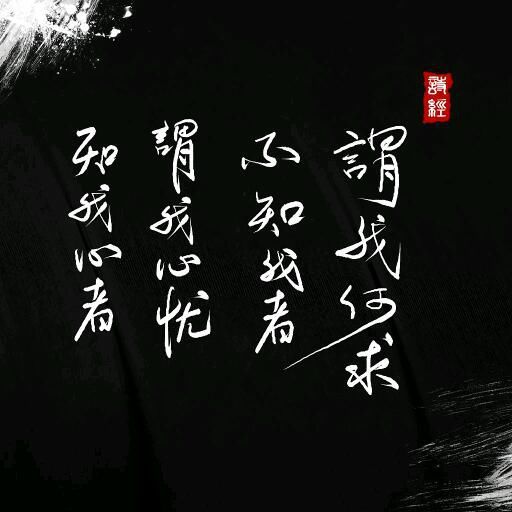 知我心者
謂我心忧
不知我者
謂我何求
詩經